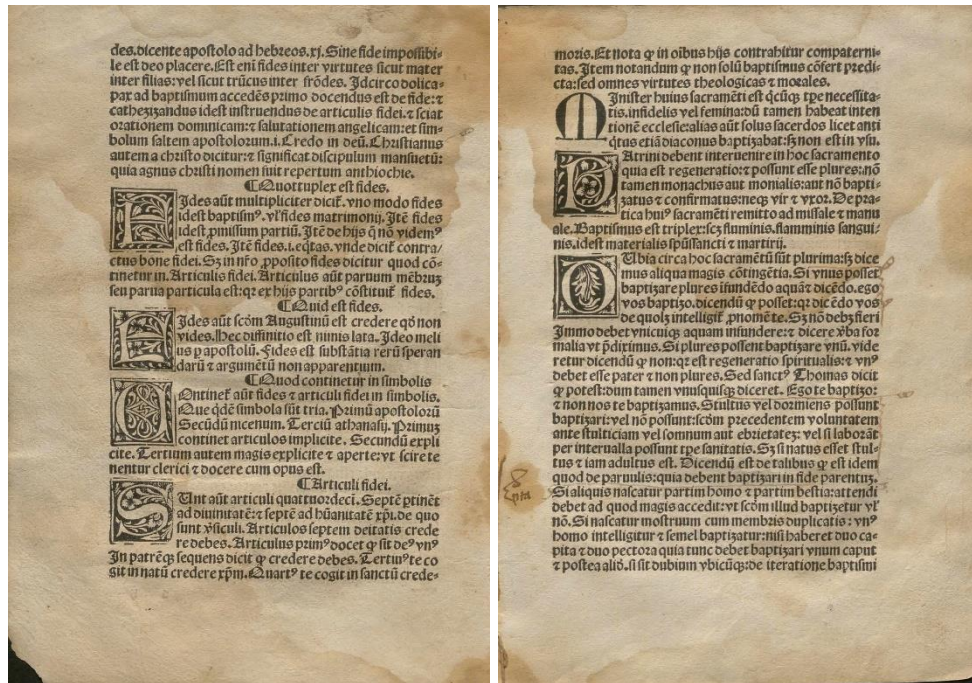 des.dicente apostolo ad hebreos.xj. Sine fide impossibi-
le est deo placere. Est enī fides inter virtutes sicut mater
inter filias: vel sicut trūcus inter frōdes. Jdcirco dolica-
pax ad baptismum accedēs primo docendus est de fide: ⁊
cathezizandus idest instruendus de articulis fidei. ⁊ sciat
orationem dominicam: ⁊ salutationem angelicam: et sim-
bolum saltem apostolorum.i. Credo in deū. Christianus
autem a christo dicitur: ⁊ significat discipulum mansuetū:
quia agnus christi nomen fuit repertum anthiochie.
¶ Quottuplex est fides.
FJdes aūt multipliciter dicit̄. vno modo fides
idest baptismꝰ. vl̓ fides matrimonij. Jtē fides
idest ꝓmissum partiū. Jtē de hijs q̄ nō videmꝰ
est fides. Jtē fides .i. eq̄tas. vnde dicit̄ contra/
ctus bone fidei. Sꝫ in nr̄o ꝓposito fides dicitur quod cō-
tinetur in. Articulis fidei. Articulus aūt paruum mēbruꝫ
seu parua particula est: qꝛ ex hijs partibꝰ cōstituit̄ fides.
¶ Quid est fides.
FJdes aūt scd̄m Augustinū est credere qd̄ non
vides. Hec diffinitio est nimis lata. Jdeo meli
us p apostolū. Fides est substātia rerū speran
darū ⁊ argumētū non apparentium.
¶ Quod continetur in simbolis
COntinet̄ aūt fides ⁊ articuli fidei in simbolis.
Que qd̄ē simbola sūt tria. Primū apostolorū
Secūdū nicenum. Terciū athanasij. Primuꝫ
continet articulos implicite. Secundū expli
cite. Tertium autem magis explicite ⁊ aperte: vt scire te
nentur clerici ⁊ docere cum opus est.
¶ Articuli fidei.
SUnt aūt articuli quattuordeci. Septē ꝑtinēt
ad diuinitatē: ⁊ septē ad hūanitatē xp̄i. de quo
sunt v̓siculi. Articulos septem deitatis crede
re debes. Articulus primꝰ docet ꝙ sit deꝰ vnꝰ
Jn patrēqꝫ sequens dicit ꝙ credere debes. Tertiuꝰ te co
git in natū credere xp̄m. Quartꝰ te cogit in sanctū crede-
moris. Et nota ꝙ in oībus hijs contrahitur compaterni-
tas. Jtem notandum ꝙ non solū baptismus cōfert predi-
cta: sed omnes virtutes theologicas ⁊ morales.
MJnister huius sacramēti est q̄cūqꝫ tp̄e necessita-
tis. infidelis vel femina: dū tamen habeat inten
tionē ecclesie: alias aūt solus sacerdos licet anti
q̄tus etiā diaconus baptizabat: sꝫ non est in vsu.
PAtrini debent interuenire in hoc sacramento
quia est regeneratio: ⁊ possunt esse plures: nō
tamen monachus aut monialis: aut nō bapti-
zatus ⁊ confirmatus: neqꝫ vir ⁊ vxor. De pra-
tica huiꝰ sacramēti remitto ad missale ⁊ manu
ale. Baptismus est triplex: scꝫ fluminis. flamminis sangui-
nis. idest materialis sp̄ūssancti ⁊ martirij.
DUbia circa hoc sacramētū sūt plurima: sꝫ dice
mus aliqua magis cōtingētia. Si vnus posset
baptizare plures īfundēdo aquā ⁊ dicēdo. ego
vos baptizo. dicendū ꝙ posset: qꝛ dicēdo vos
de quolꝫ intelligit̄ ꝓnomē te. Sꝫ nō debꝫ fieri
Jmmo debet vnicuiqꝫ aquam infundere: ⁊ dicere v̓ba for
malia vt p̄diximus. Si plures possent baptizare vnū. vide
retur dicendū ꝙ non: qꝛ est regeneratio spiritualis: ⁊ vnꝰ
debet esse pater ⁊ non plures. Sed sanctꝰ Thomas dicit
ꝙ potest: dum tamen vnusquisqꝫ diceret. Ego te baptizo:
⁊ non nos te baptizamus. Stultus vel dormiens possunt
baptizari: vel nō possunt: scd̄m precedentem voluntatem
ante stulticiam vel somnum aut ebrietateꝫ: vel si laborāt
per interualla possunt tp̄e sanitatis. Sꝫ si natus esset stul-
tus ⁊ iam adultus est. Dicendū est de talibus ꝙ est idem
quod de paruulis: quia debent baptizari in fide parentuꝫ.
Si aliquis nascatur partim homo ⁊ partim bestia: attendi
debet ad quod magis accedit: vt scd̄m illud baptizetur vl̓
nō. Si nascatur mostruum cum membris duplicatis: vnꝰ
homo intelligitur ⁊ semel baptizatur: nisi haberet duo ca-
pita ⁊ duo pectora quia tunc debet baptizari vnum caput
⁊ postea aliō. si sit dubium vbicūqꝫ: de iteratione baptismi